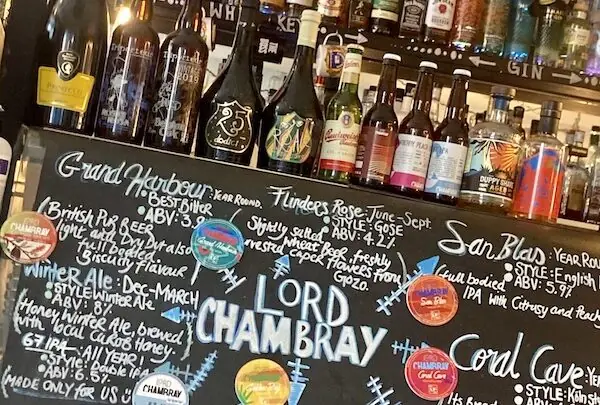 WH
KEY
GIN
Budweiser
25
DUPPY SHARE
Grand Harbour: YEAR ROUND.
• BEST Bitter
• ABV: 3.8%
(British Pub BEER
light and Dry but also
full bodied.
Biscuity Flavour
Winter Ale: Dec-MARCH
• STYLE: Winter Ale
• ABV: 8%
Honey Winter Ale, brewed
with local Carob Honey.
67 IPA - ALL YEAR!
• Style: Double IPA
• ABV: 6.5%
(MADE ONLY FOR US
Flinders Rose: June-Sept.
• STYLE: GOSE
• ABV: 4.2%
Slightly salted, freshly
wheat Beer,
Caper Flowers from
Gozo.
LORD
CHAMBRAY
San Blas: YEAR ROU
• STYLE: English I
• ABV: 5.7%
Full bodied
IPA with Citrusy and Peachy
Coral Cave: YE
• STYLE: Köln Sty
• ABV:
Its Br
CHAMBRAY
Grand Harbour
CHAMBRAY
San Blas
CHAMBRAY
Coral Cave
LORD
CHAMBRAY